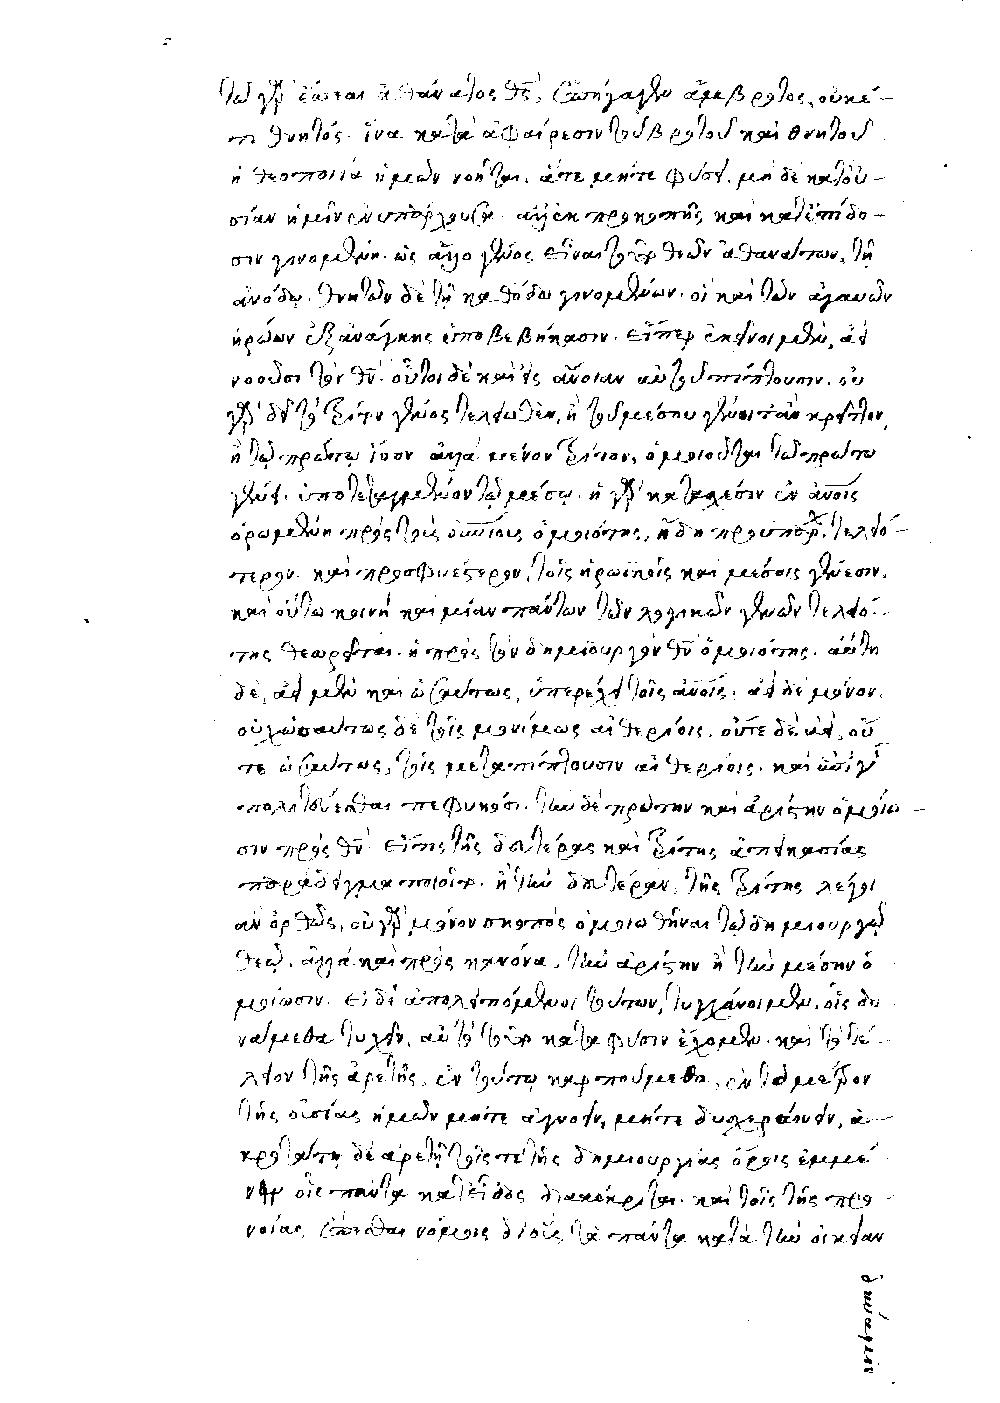 τῷ γὰρ ἔσεαι ἀθάνατος θεὸς, ἐπήγαγεν ἄμβροτος, οὐκέ-
τι θνητός. ἵνα κατὰ ἀφαίρεσιν τοῦ βροτοῦ καὶ θνητοῦ
ἡ θεοποιία ἡμῶν νοῆται. ἅτε μήτε φύσει. μηδὲ κατ' οὐ-
σίαν ἡμῖν ἐνυπάρχουσα. ἀλλ' ἐκ προκοπῆς καὶ κατ' ἐπίδο-
σιν γινομένη. ὡς ἄλλο γένος εἶναι τοῦτο θεῶν ἀθανάτων, τῇ
ἀνόδῳ. θνητῶν δὲ τῇ καθόδῳ γινομένων. οἳ καὶ τῶν ἀγαυῶν
ἡρώων ἐξ ἀνάγκης ὑποβεβήκασιν. εἴπερ ἐκεῖνοι μὲν, ἀεὶ
νοοῦσι τὸν θεόν. οὗτοι δὲ καὶ εἰς ἄνοιαν αὐτοῦ πίπτουσιν. οὐ
γὰρ δὴ τὸ τρίτον γένος τελειωθὲν, ἢ τοῦ μέσου γένοιτ' ἂν κρεῖττον,
ἢ τῷ πρώτῳ ἴσον ἀλλὰ μένον τρίτον, ὁμοιοῦται τῷ πρώτῳ
γένει. ὑποτεταγμένον τῷ μέσῳ. ἡ γὰρ κατὰ σχέσιν ἐν ἀνθρώποις
ὁρωμένη πρὸς τοὺς οὐρανίους ὁμοιότης, ἤδη προϋπάρχει τελειό-
τερον. καὶ προσφυέστερον, τοῖς ἡρωϊκοῖς καὶ μέσοις γένεσιν.
καὶ οὕτω κοινὴ καὶ μία πάντων τῶν λογικῶν γενῶν τελειό-
της θεωρεῖται. ἡ πρὸς τὸν δημιουργὸν θεὸν ὁμοιότης. αὕτη
δὲ, ἀεὶ μὲν καὶ ὡσαύτως, ὑπάρχει τοῖς οὐρανίοις. ἀεὶ δὲ μόνον.
οὐχ ὡσαύτως δὲ τοῖς μονίμως αἰθερίοις. οὔτε δὲ ἀεὶ, οὔ
τε ὡσαύτως, τοῖς μεταπίπτουσιν αἰθερίοις. καὶ ἐπὶ γῆς
πολιτεύεσθαι πεφυκόσι. τὴν δὲ πρώτην καὶ ἀρίστην ὁμοίω-
σιν πρὸς θεὸν εἴ τις τῆς δευτέρας καὶ τρίτης ἀπεικασίας
παράδειγμα ποιοῖτο. ἢ τὴν δευτέραν, τῆς τρίτης λέγοι
ἂν ὀρθῶς, οὐ γὰρ μόνον σκοπὸς ὁμοιωθῆναι τῷ δημιουργῷ
θεῷ. ἀλλὰ καὶ πρὸς κανόνα. τὴν ἀρίστην ἢ τὴν μέσην ὁ
μοίωσιν. εἰ δὲ ἀπολειπόμενοι τούτων, τυγχάνοιμεν, οἷς δυ
νάμεθα τυχεῖν, αὐτὸ τοῦτο κατὰ φύσιν ἔχομεν. καὶ τὸ τέ
λειον τῆς ἀρετῆς, ἐν τούτῳ καρπούμεθα, ἐν τῷ μέτρον
τῆς οὐσίας ἡμῶν μήτε ἀγνοεῖν, μήτε δυσχεραίνειν, ἀ-
κροτάτη δὲ ἀρετὴ τοῖς τε τῆς δημιουργίας ὅροις ἐμμέ
νειν οἷς πάντα κατ' εἶδος διακέκριται. καὶ τοῖς τῆς προ-
νοίας, ἕπεσθαι νόμοις δι' οὓς τὰ πάντα κατὰ τὴν οἰκείαν
δύναμιν